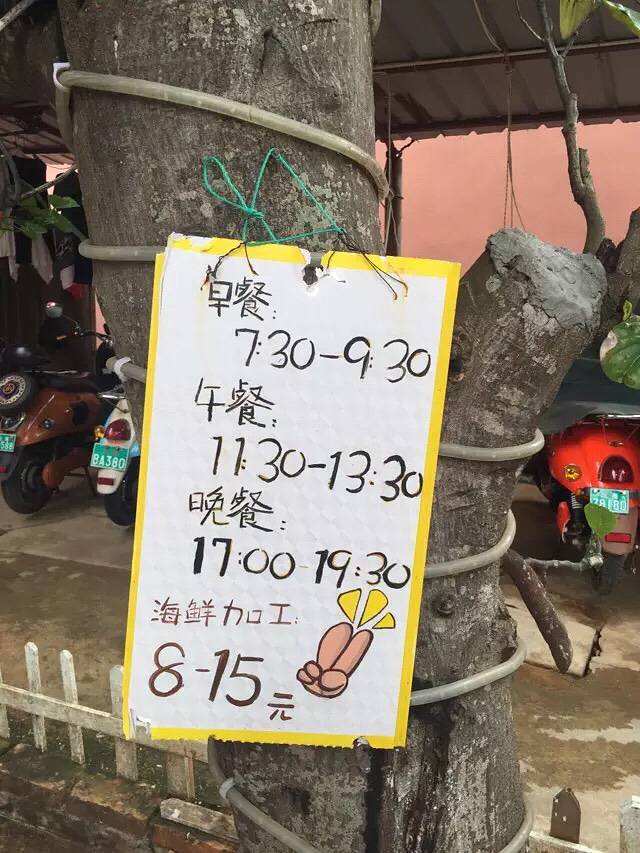 早餐:
7:30-9:30
午餐:
11:30-13:30
晚餐:
17:00-19:30
海鲜加工:
8-15元
BA380